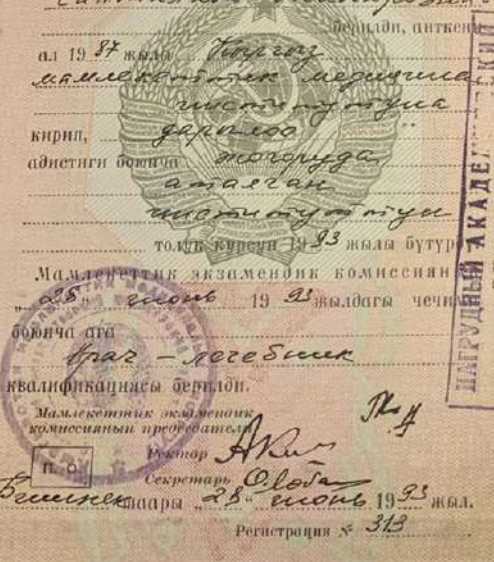 берилди, анткени
ал 1987 жылы Кыргыз
мамлекеттик медицина
институтуна
кирип, дарылоо
адистиги боюнча жогоруда
аталган
институттун
толук курсун 1993 жылы бүтүр
Мамлекеттик экзамендик комиссиян
„28“ июнь 1993 жылдагы чечи
боюнча ага
Врач – лечебник
квалификациясы берилди.
Мамлекеттик экзамендик
комиссиянын председатели
Ректор
Секретарь
М. О.
Бишкек шаары „28“ июнь 1993 жыл.
Регистрация № 313
НАГРУДНЫЙ АКАДЕМ